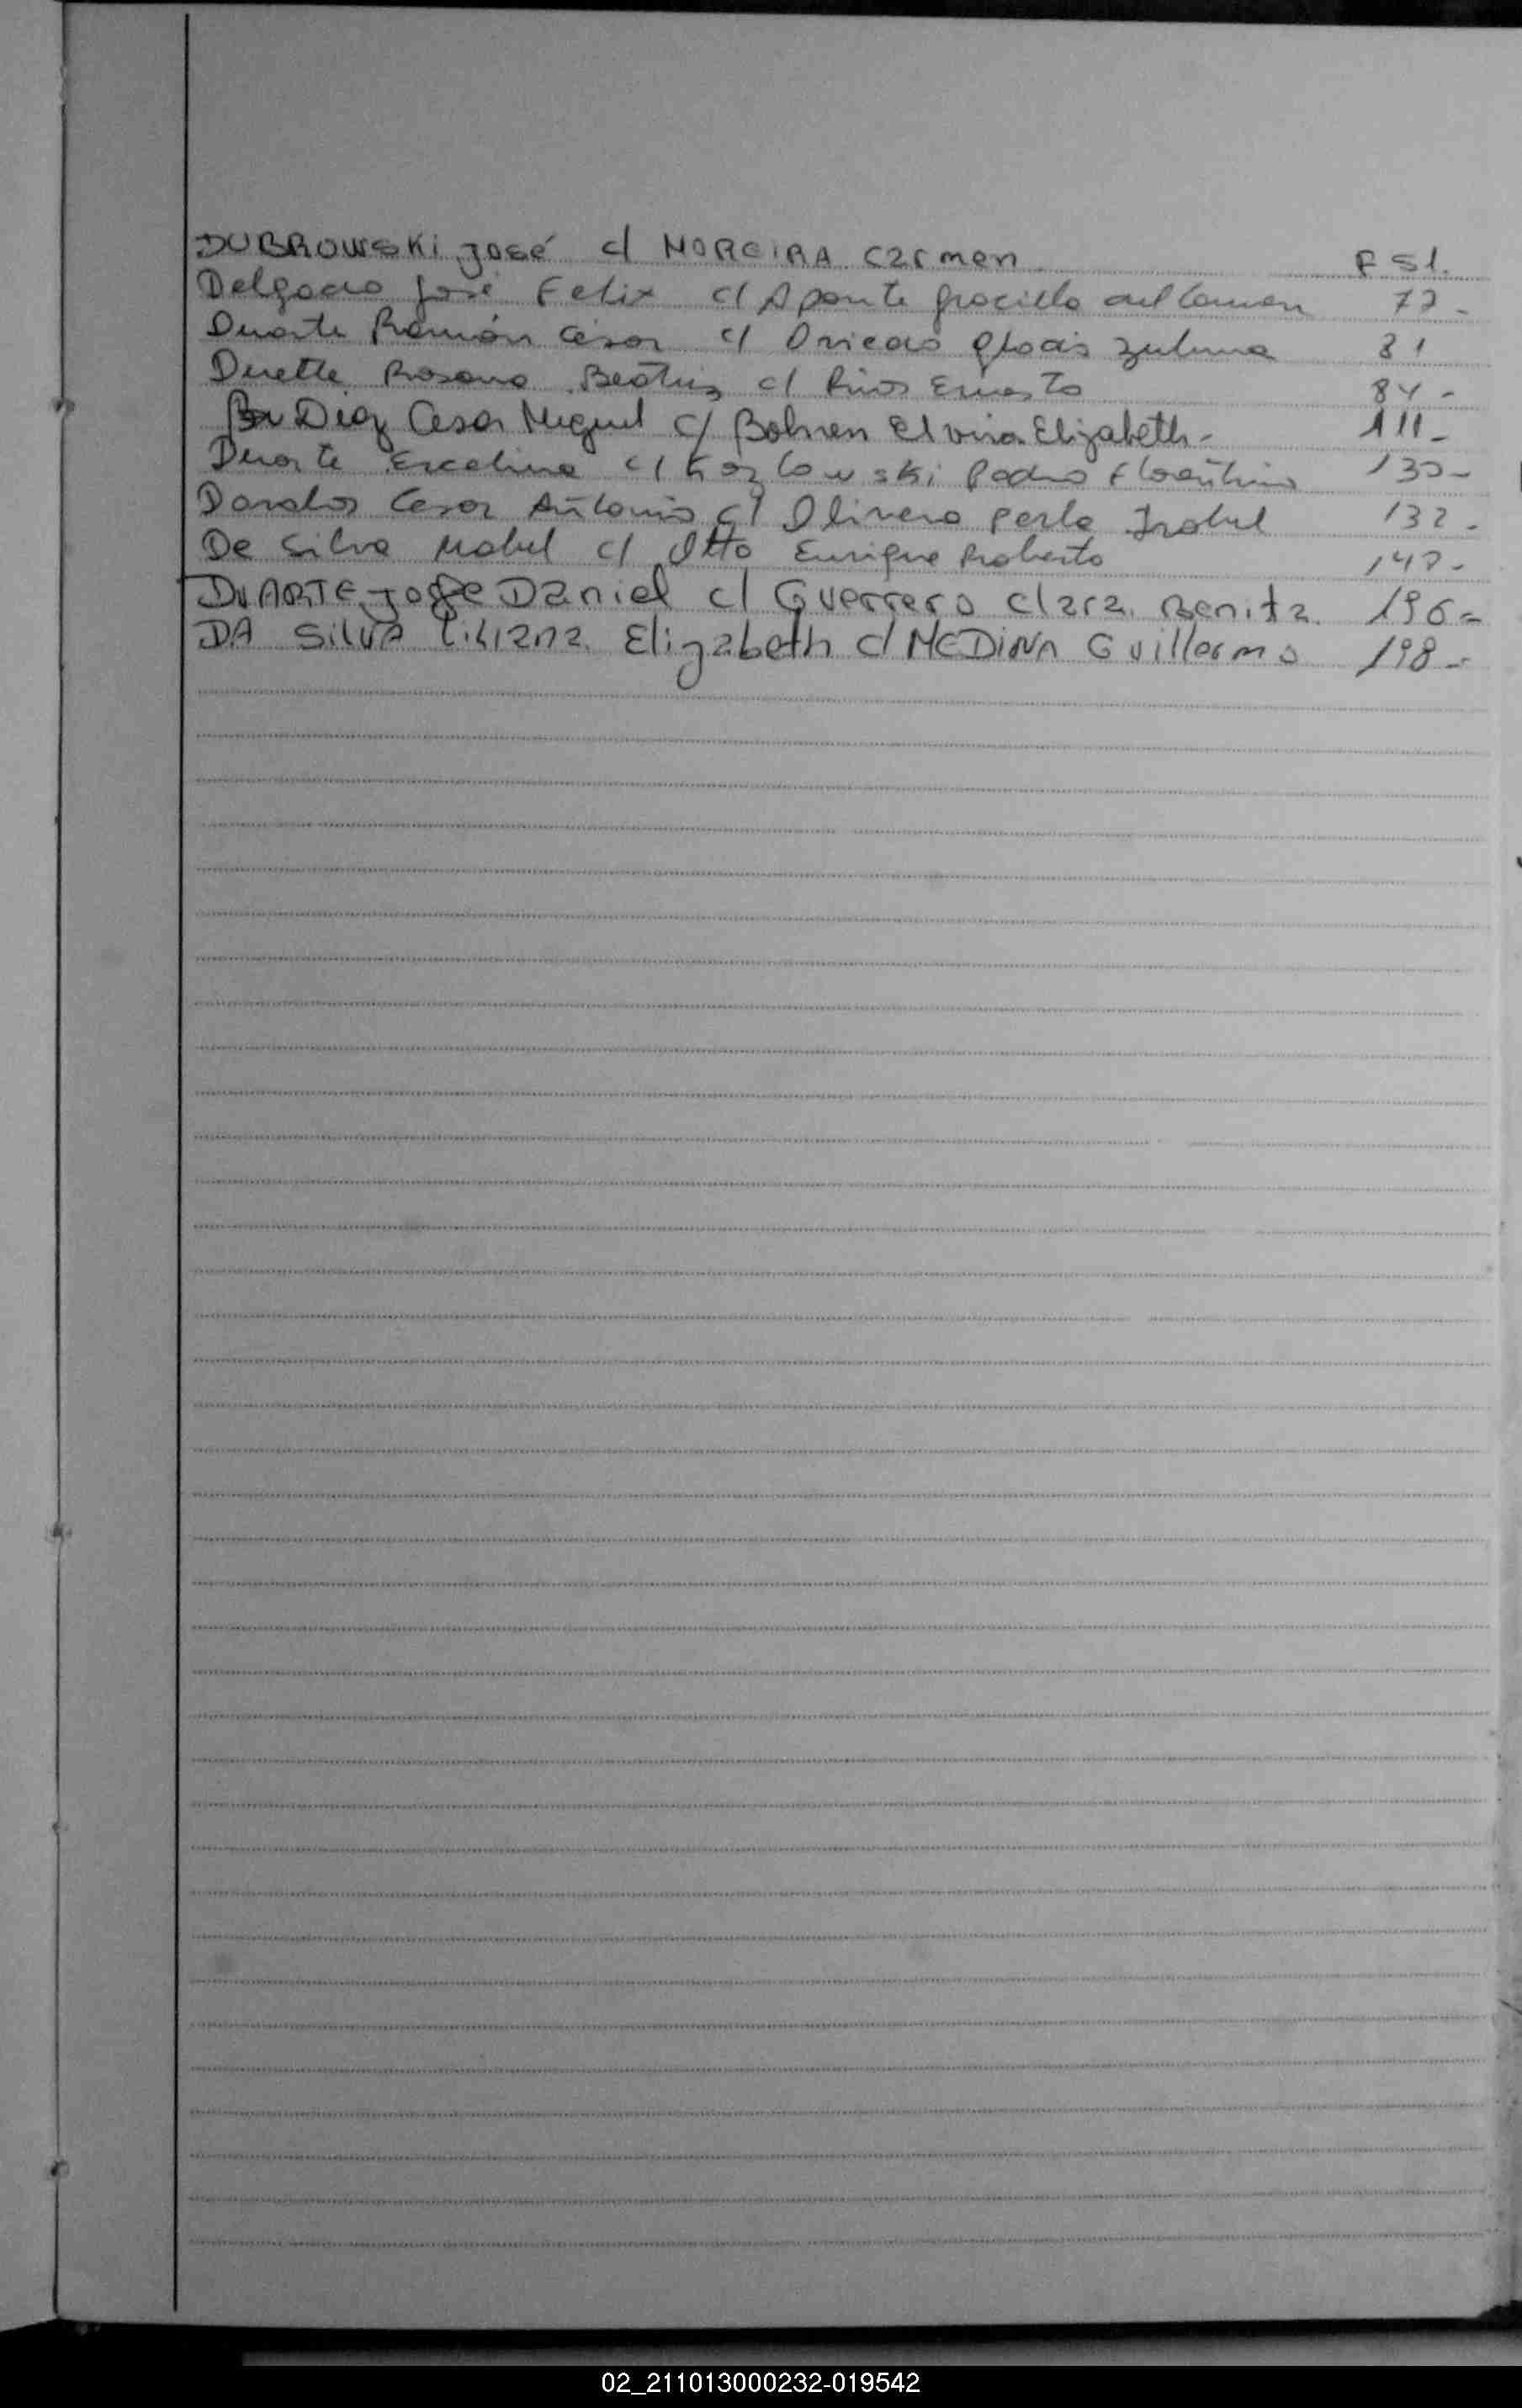 DUBROWSKI José c/ MOREIRA Carmen F 51.
Delgado José Felix c/ Aponte Graciela del Carmen 77-
Duarte Ramón César c/ Oviedo Gladis Zulma 81
Duette Rosana Beatriz c/ Rios Ernesto 84-
Diaz Cesar Miguel c/ Bohnen Elvira Elizabeth- 111-
Duarte c/ Kozlowski Pedro Florentino 130-
Davalos Cesar Antonio c/ Olivera Perla Isabel 132-
De Silva Mabel c/ Otto Enrique Roberto
DUARTE Jose Daniel c/ Guerrero Clara Benita 196-
DA SILVA Liliana Elizabeth c/ MEDINA Guillermo 198-
02_211013000232-019542